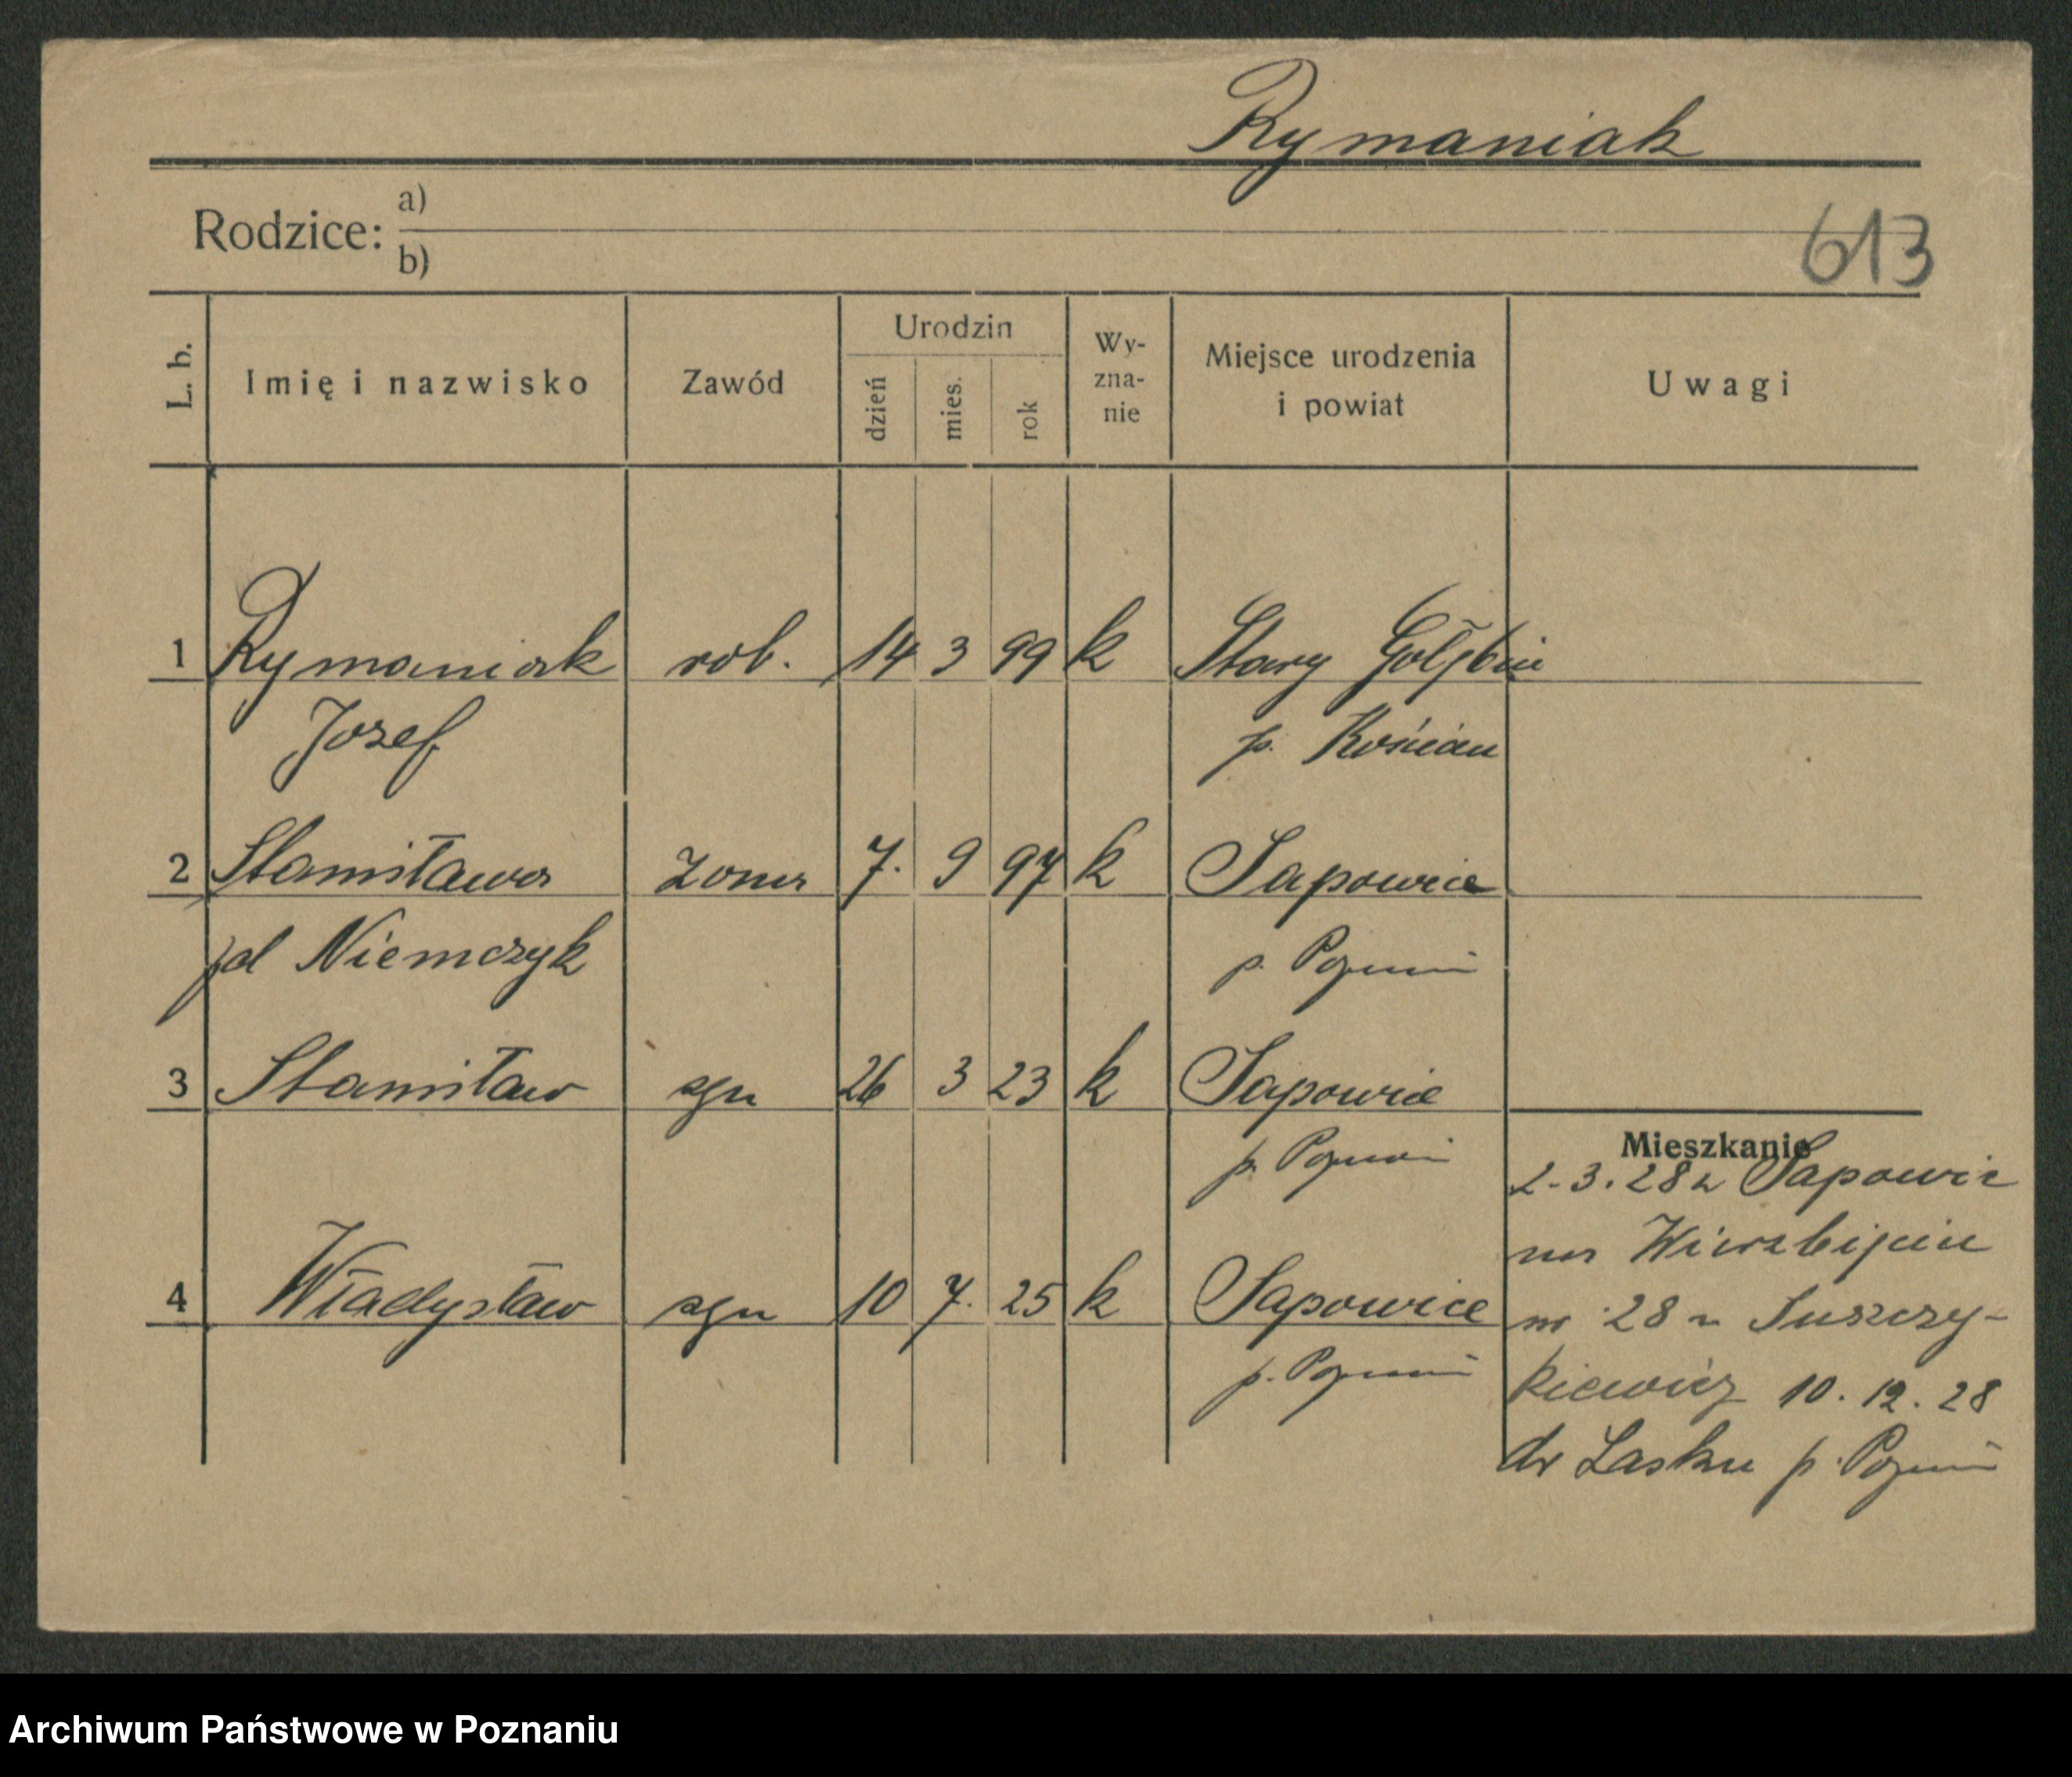 Rymaniak
Rodzice: a)
b)
613
L. b.
Imię i nazwisko
Zawód
Urodzin
dzień
mies.
rok
Wy-
zna-
nie
Miejsce urodzenia
i powiat
Uwagi
1 Rymaniak rob. 14 3 99 k Stary Gołębin
Jozef p. Kościan
2 Stanisława zona 7. 9 97 k Sapowice
zd Niemczyk p. Poznań
3 Stanisław syn 26 3 23 k Sapowice
p. Poznań
Mieszkanie
2.3.28 z Sapowic
na
4 Władysław syn 10 7. 25 k Sapowice
nr 28 u Suszczy-
p. Poznań
kiewicz 10.12.28
do Lasku p. Poznań
Archiwum Państwowe w Poznaniu